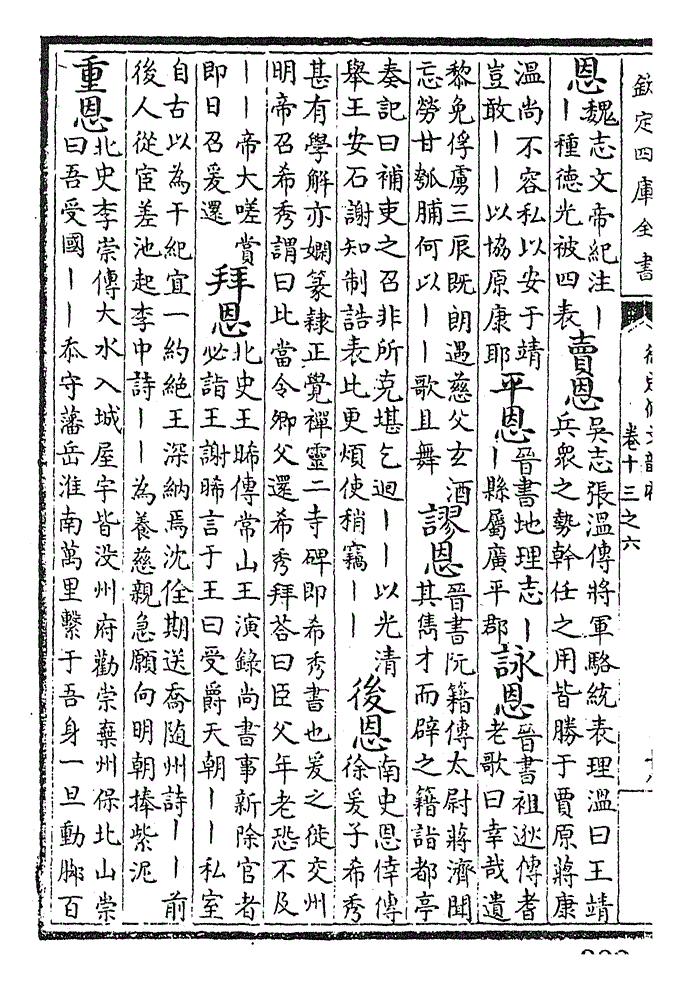 欽定四庫全書
卷十三之六
恩 魏志文帝紀注丨
丨種德光被四表
賣恩 吳志張溫傳將軍駱統表理溫曰王靖
兵衆之勢幹任之用皆勝于賈原蔣康
溫尚不容私以安于靖
豈敢丨丨以協原康耶
平恩 晉書地理志丨
丨縣屬廣平郡
詠恩 晉書祖逖傳耆
老歌曰幸哉遺
黎免俘虜三辰既朗遇慈父玄酒
忘勞甘瓠脯何以丨丨歌且舞
謬恩 晉書阮籍傳太尉蔣濟聞
其雋才而辟之籍詣都亭
奏記曰補吏之召非所克堪乞迴丨丨以光清
舉王安石謝知制誥表比更煩使稍竊丨丨
後恩 南史恩倖傳
徐爰子希秀
甚有學解亦嫻篆隸正覺禪靈二寺碑即希秀書也爰之徙交州
明帝召希秀謂曰比當令卿父還希秀拜荅曰臣父年老恐不及
丨丨帝大嗟賞
即日召爰還
拜恩 北史王晞傳常山王演錄尚書事新除官者
必詣王謝晞言于王曰受爵天朝丨丨私室
自古以為干紀宜一約絕王深納焉沈佺期送喬隨州詩丨丨前
後人從宦差池起李中詩丨丨為養慈親急願向明朝捧紫泥
重恩 北史李崇傳大水入城屋宇皆沒州府勸崇棄州保北山崇
曰吾受國丨丨忝守藩岳淮南萬里繫于吾身一旦動脚百